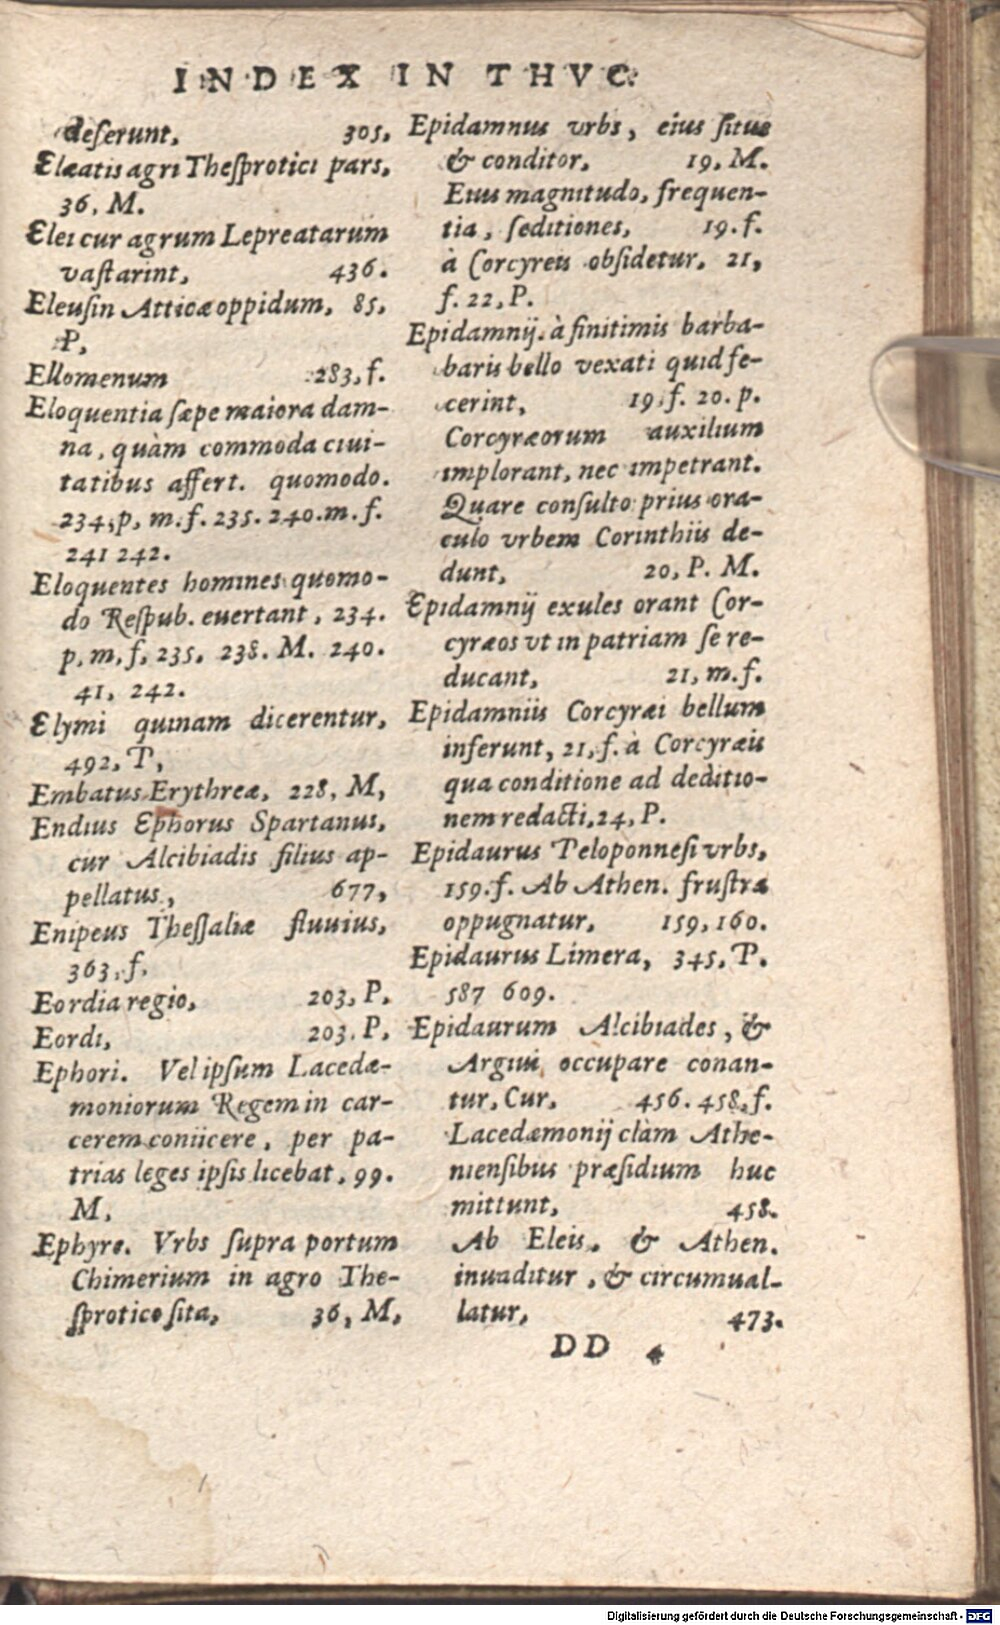 INDEX IN THVC.
deserunt, 305,
Elæatis agri Thesprotici pars,
36, M.
Elei cur agrum Lepreatarum
vastarint, 436.
Eleusin Atticæ oppidum, 85,
P,
Ellomenum 283, f.
Eloquentia sæpe maiora dam-
na, quàm commoda ciui-
tatibus affert. quomodo.
234, p, m. f. 235. 240. m. f.
241 242.
Eloquentes homines quomo-
do Respub. euertant, 234.
p, m, f, 235, 238. M. 240.
41, 242.
Elymi quinam dicerentur,
492, P,
Embatus Erythreæ, 228, M,
Endius Ephorus Spartanus,
cur Alcibiadis filius ap-
pellatus, 677,
Enipeus Thessaliæ fluuius,
363, f.
Eordia regio, 203, P.
Eordi, 203. P.
Ephori. Vel ipsum Lacedæ-
moniorum Regem in car-
cerem coniicere, per pa-
trias leges ipsis licebat, 99.
M,
Ephyre. Vrbs supra portum
Chimerium in agro The-
sprotico sita, 36, M,
Epidamnus vrbs, eius situs
& conditor, 19, M.
Eius magnitudo, frequen-
tia, seditiones, 19. f.
à Corcyreis obsidetur, 21,
f. 22, P.
Epidamnij. à finitimis barba-
baris bello vexati quid fe-
cerint, 19. f. 20. p.
Corcyræorum auxilium
implorant, nec impetrant.
Quare consulto prius ora-
culo vrbem Corinthiis de-
dunt, 20, P. M.
Epidamnij exules orant Cor-
cyræos vt in patriam se re-
ducant, 21, m. f.
Epidamniis Corcyræi bellum
inferunt, 21, f. à Corcyræis
qua conditione ad deditio-
nem redacti, 24, P.
Epidaurus Peloponnesi vrbs,
159. f. Ab Athen. frustra
oppugnatur, 159, 160.
Epidaurus Limera, 345, P.
587 609.
Epidaurum Alcibiades, &
Argiui occupare conan-
tur, Cur, 456. 458, f.
Lacedæmonij clàm Athe-
niensibus præsidium huc
mittunt, 458.
Ab Eleis, & Athen.
inuaditur, & circumual-
latur, 473.
DD 4
Digitalisierung gefördert durch die Deutsche Forschungsgemeinschaft - DFG